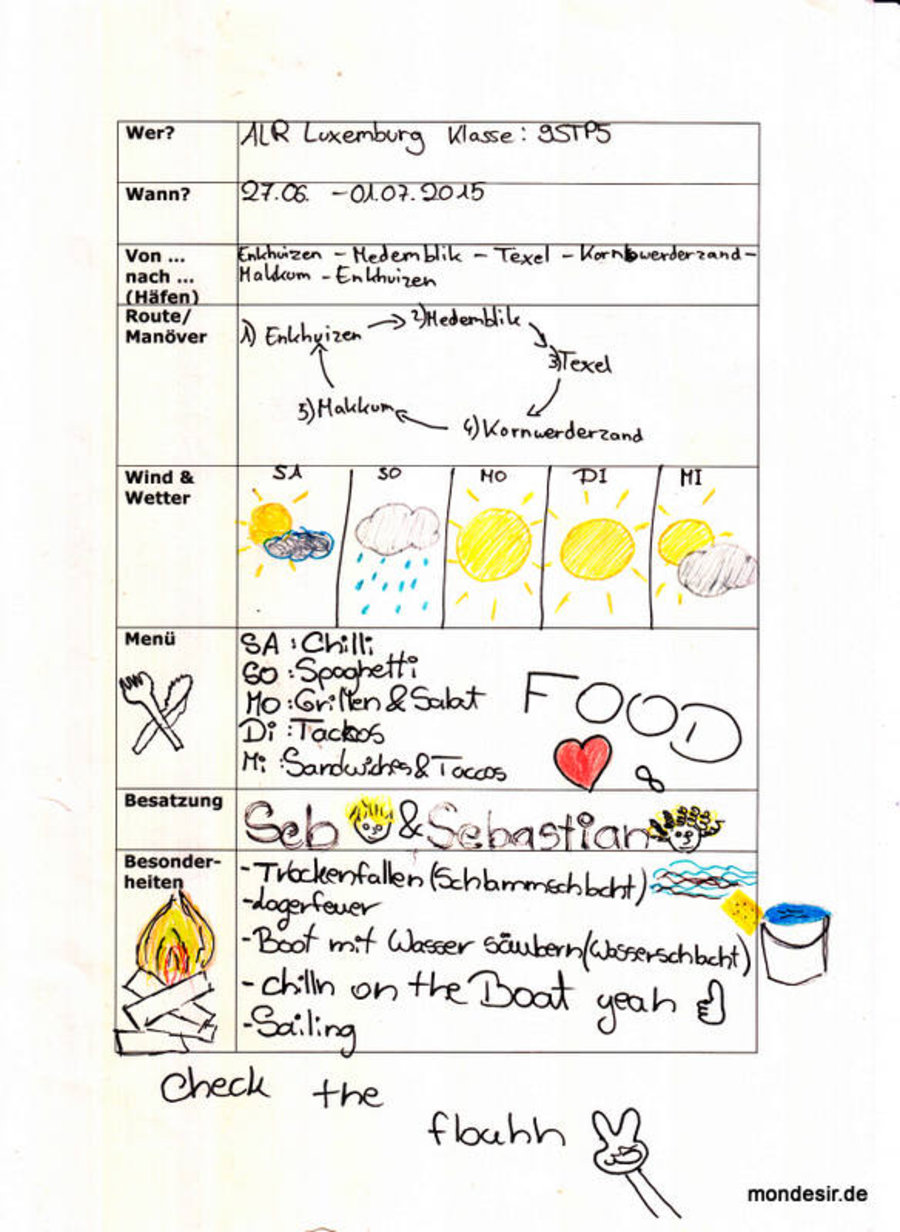 Wer? ALR Luxemburg Klasse: 9STP5
Wann? 27.06. - 01.07.2015
Von ... Enkhuizen - Medemblik - Texel - Kornbwerderzand -
nach ... Makkum - Enkhuizen
(Häfen)
Route/
Manöver
1) Enkhuizen
2) Medemblik
3) Texel
4) Kornwerderzand
5) Makkum
Wind &
Wetter
SA SO MO DI MI
Menü
SA : Chilli
SO : Spaghetti
MO : Grillen & Salat
Di : Tackos
Mi : Sandwiches & Taccos
FOOD
Besatzung Seb & Sebastian
Besonder-
heiten
- Trockenfallen (Schlammschlacht)
- Lagerfeuer
- Boot mit Wasser säubern (Wasserschlacht)
- chilln on the Boat yeah
- Sailing
check the
flouhh
mondesir.de